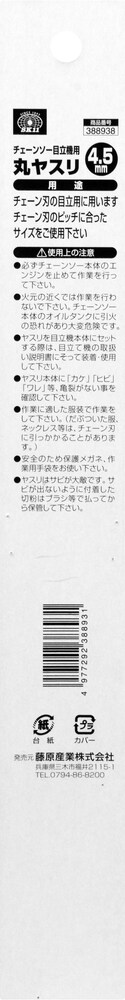 SK11
商品番号
388938
チェーンソー目立機用
丸ヤスリ
4.5mm
用途
チェーン刃の目立用に用います
チェーン刃のピッチに合った
サイズをご使用下さい
⚠使用上の注意
●必ずチェーンソー本体のエ
ンジンを止めて作業を行っ
て下さい。
●火元の近くでは作業を行わ
ないで下さい。チェーンソー
本体のオイルタンクに引火
の恐れがあり大変危険です。
●ヤスリを目立機本体にセット
する際は、目立て機の取扱
い説明書にそって装着・使用
して下さい。
●ヤスリ本体に「カケ」「ヒビ」
「ワレ」等、亀裂がない事を
確認して下さい。
●作業に適した服装で作業を
して下さい。(だぶついた服、
ネックレス等は、チェーン刃
に引っかかることがありま
す。)
●安全のため保護メガネ、作
業用手袋をお使い下さい。
●ヤスリはサビが大敵です。サ
ビが出ないように付着した
切粉はブラシ等で払ってか
ら保管して下さい。
4 977292 388931
紙
台紙
プラ
カバー
発売元 藤原産業株式会社
兵庫県三木市福井2115-1
TEL.0794-86-8200